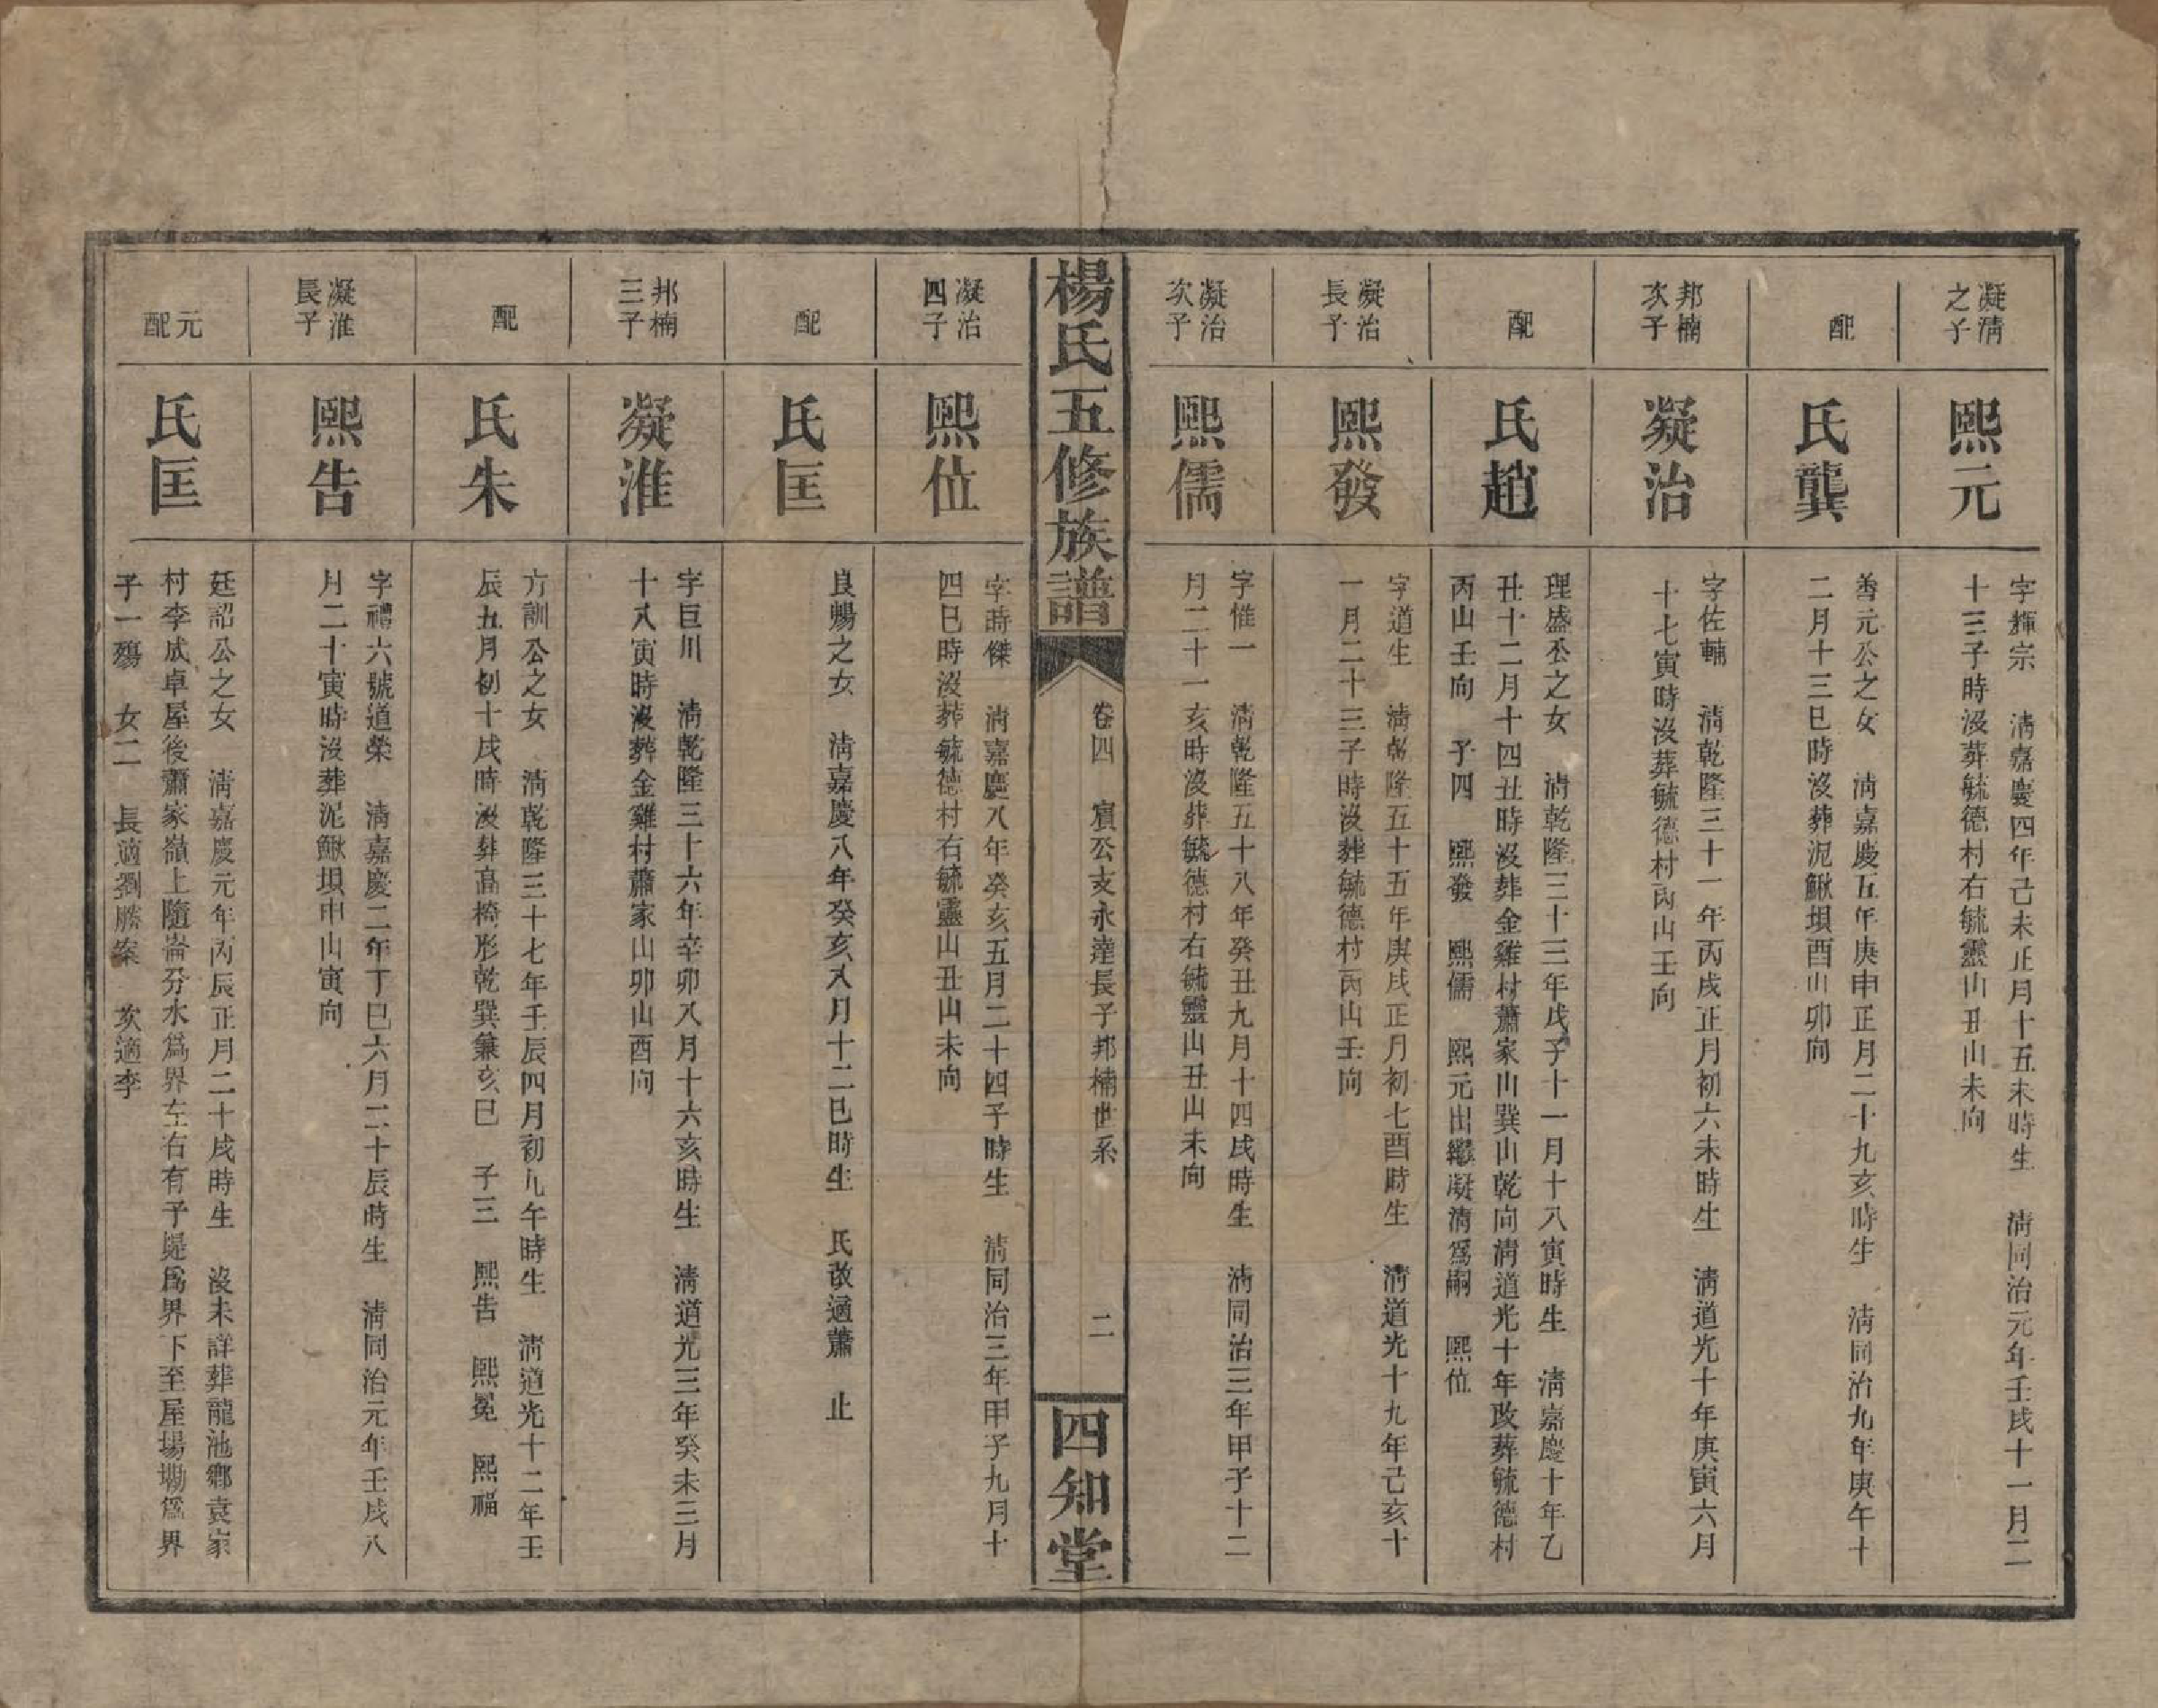 凝清
之子
熙元
字輝宗　清嘉慶四年己未正月十五未時生　清同治元年壬戌十一月二
十三子時沒葬毓德村右毓靈山丑山未向
配
氏龔
善元公之女　清嘉慶五年庚申正月二十九亥時生　清同治九年庚午十
二月十三巳時沒葬泥鰍垻酉山卯向
邦楠
次子
凝治
字佐輔　清乾隆三十一年丙戌正月初六未時生　清道光十年庚寅六月
十七寅時沒葬毓德村丙山壬向
配
氏趙
理盛公之女　清乾隆三十三年戊子十一月十八寅時生　清嘉慶十年乙
丑十二月十四丑時沒葬金雞村蕭家山巽山乾向清道光十年改葬毓德村
丙山壬向　子四　熙發　熙儒　熙元出繼凝清爲嗣　熙位
凝治
長子
熙發
字道生　清乾隆五十五年庚戌正月初七酉時生　清道光十九年己亥十
一月二十三子時沒葬毓德村丙山壬向
凝治
次子
熙儒
字惟一　清乾隆五十八年癸丑九月十四戌時生　清同治三年甲子十二
月二十一亥時沒葬毓德村右毓靈山丑山未向
楊氏五修族譜
卷四　賓公支永達長子邦楠世系　二
四知堂
凝治
四子
熙位
字蒔傑　清嘉慶八年癸亥五月二十四子時生　清同治三年甲子九月十
四巳時沒葬毓德村右毓靈山丑山未向
配
氏匡
良暘之女　清嘉慶八年癸亥八月十二巳時生　氏改適蕭　止
邦楠
三子
凝淮
字巨川　清乾隆三十六年辛卯八月十六亥時生　清道光三年癸未三月
十八寅時沒葬金雞村蕭家山卯山酉向
配
氏朱
方訓公之女　清乾隆三十七年壬辰四月初九午時生　清道光十二年壬
辰五月初十戌時沒葬高椅形乾巽兼亥巳　子三　熙告　熙冕　熙福
凝淮
長子
熙告
字禮六號道榮　清嘉慶二年丁巳六月二十辰時生　清同治元年壬戌八
月二十寅時沒葬泥鰍垻申山寅向
元
配
氏匡
廷詔公之女　清嘉慶元年丙辰正月二十戌時生　沒未詳葬龍池鄉袁家
村李成卓屋後蕭家嶺上隨崙分水爲界左右有子堤爲界下至屋場墈爲界
子一殤　女二　長適劉勝案　次適李